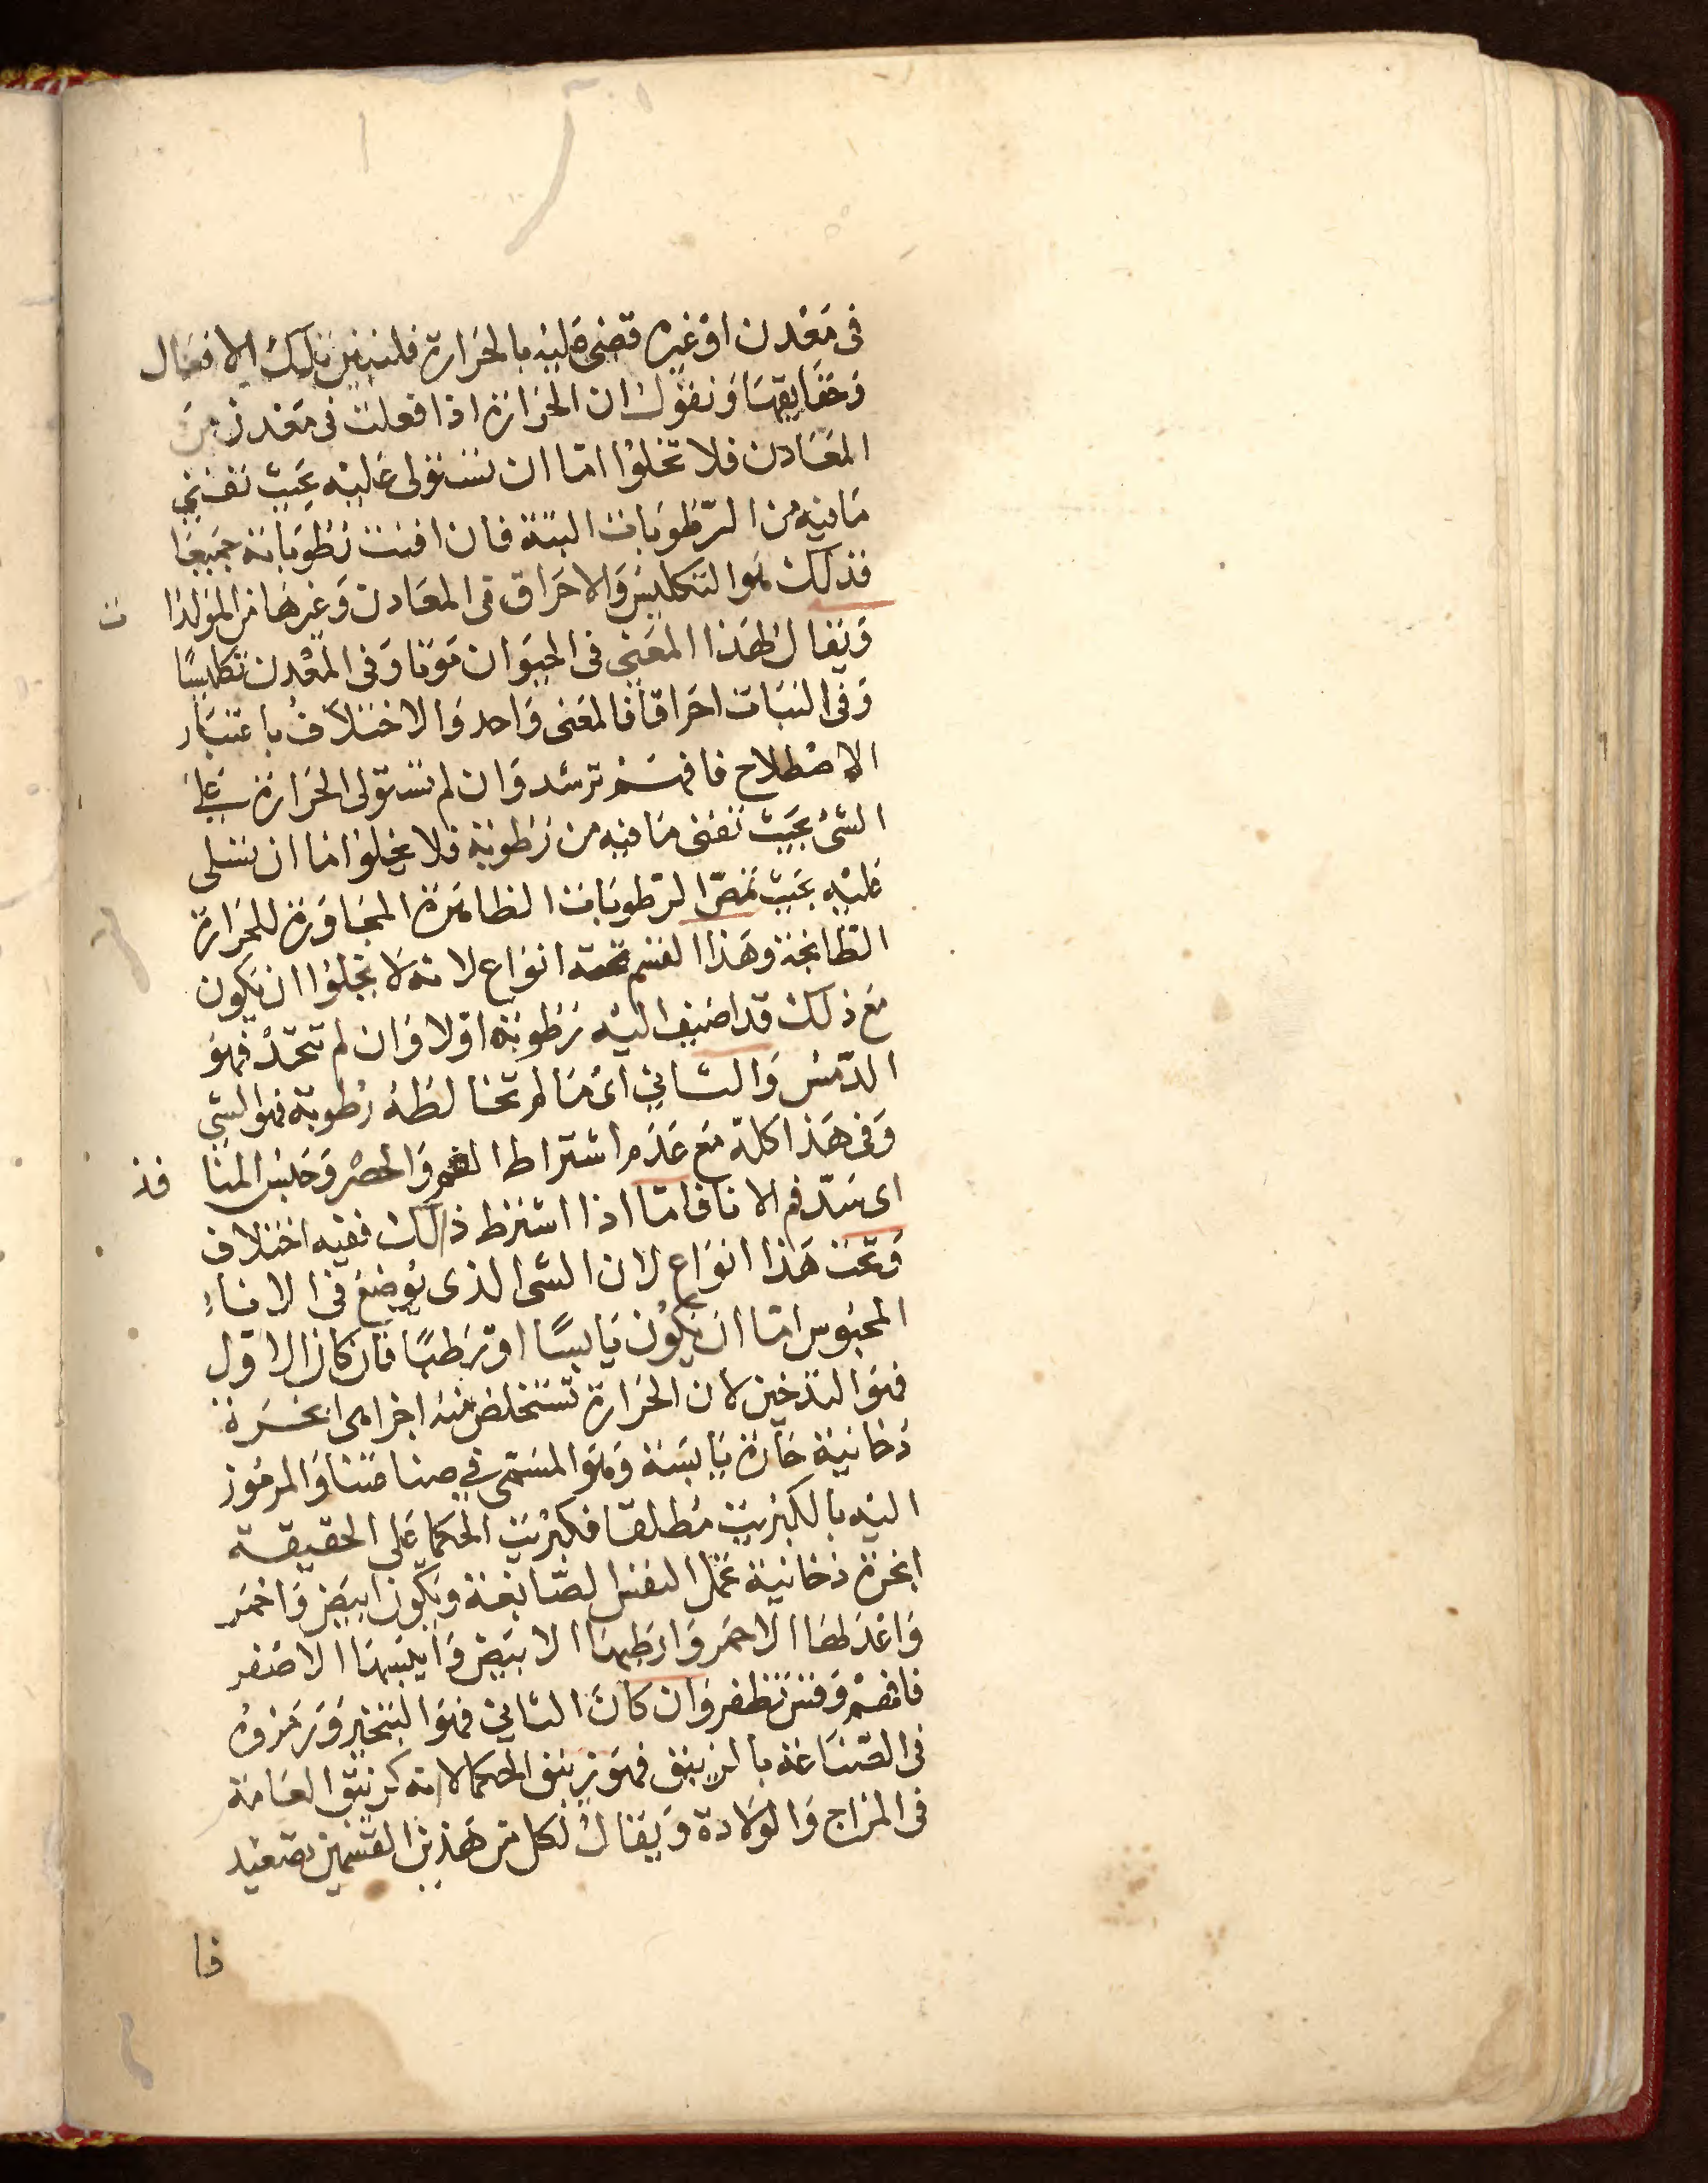 في معدن او غيره قضى عليه بالحرارة فلنبين تلك الافعال
وحقايقها ونقول ان الحرارة اذا فعلت في معدن من
المعادن فلا تخلوا امّا ان تستولى عليه بحيث تفني
ما فيه من الرّطوبات البتة فان افنت رطوباته جميعا
فذلك هو التكليس والاحراق في المعادن وغيرها من المولدا ت
ويقال لهذا المعنى في الحيوان موتا وفي المعدن تكليسًا
وفي النبات احراقا فالمعنى واحد والاختلاف باعتبار
الاصطلاح فافهم ترشد وان لم تستولى الحرارة على
الشئ بحيث تفنى ما فيه من رطوبة فلا يخلوا اما ان تستلى
عليه بحيث تمصّ الرطوبات الظاهرة المجاورة للحرارة
الطابخة وهذا القسم تحته انواع لانه لا يخلوا ان يكون
مع ذلك قد اضيف اليه رطوبة اوّلا وان لم تتحد فهو
الدّمس والثاني اى ما لم تخالطه رطوبة فهو الشي
وفي هذا كلّه مع عدم اشتراط الغم والحصر وحبس المنا فذ
اى سدّ فم الانا فامّا اذا اشترط ذلك ففيه اختلاف
وتحت هذا انواع لان الشى الذى يوضع في الاناء
المحبوس امّا ان يكون يابسًا او رطبًا فان كان الاوّل
فهو التدخين لان الحرارة تستخلص منه اجراما ابخرة
دخانية حارة يابسة وهو المسمّى في صناعتنا والمرموز
اليه بالكبريت مطلقا فكبريت الحكما على الحقيقة
ابخرة دخانية تحمل النفس الصّابغة ويكون ابيض واحمر
واعدلها الاحمر وارطبها الابيض وايبسها الاصفر
فافهم وفتش تظفر وان كان الثاني فهو التبخير ورمزوه
في الصّناعة بالزيبق فهو زيبق الحكما لانه كزيبق العامة
في المزاج والولادة ويقال لكل من هذين القسمين تصعيد
فا